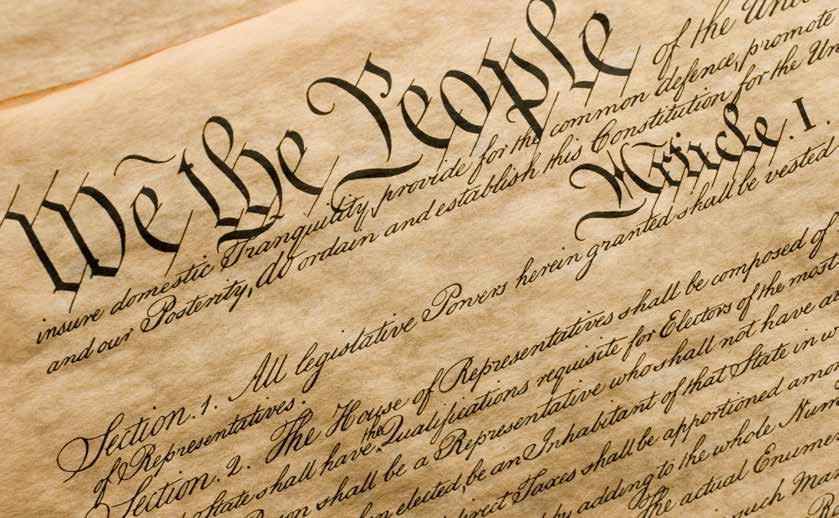 We the People of the Unit
insure domestic Tranquility, provide for the common defence, promote
and our Posterity, do ordain and establish this Constitution for the Un
Article. I.
Section. 1. All legislative Powers herein granted shall be vested
of Representatives.
Section. 2. The House of Representatives shall be composed of
State shall have the Qualifications requisite for Electors of the most
shall be a Representative who shall not have a
elected, be an Inhabitant of that State in w
Taxes shall be apportioned amon
by adding to the whole Num
The actual Enume
such Man